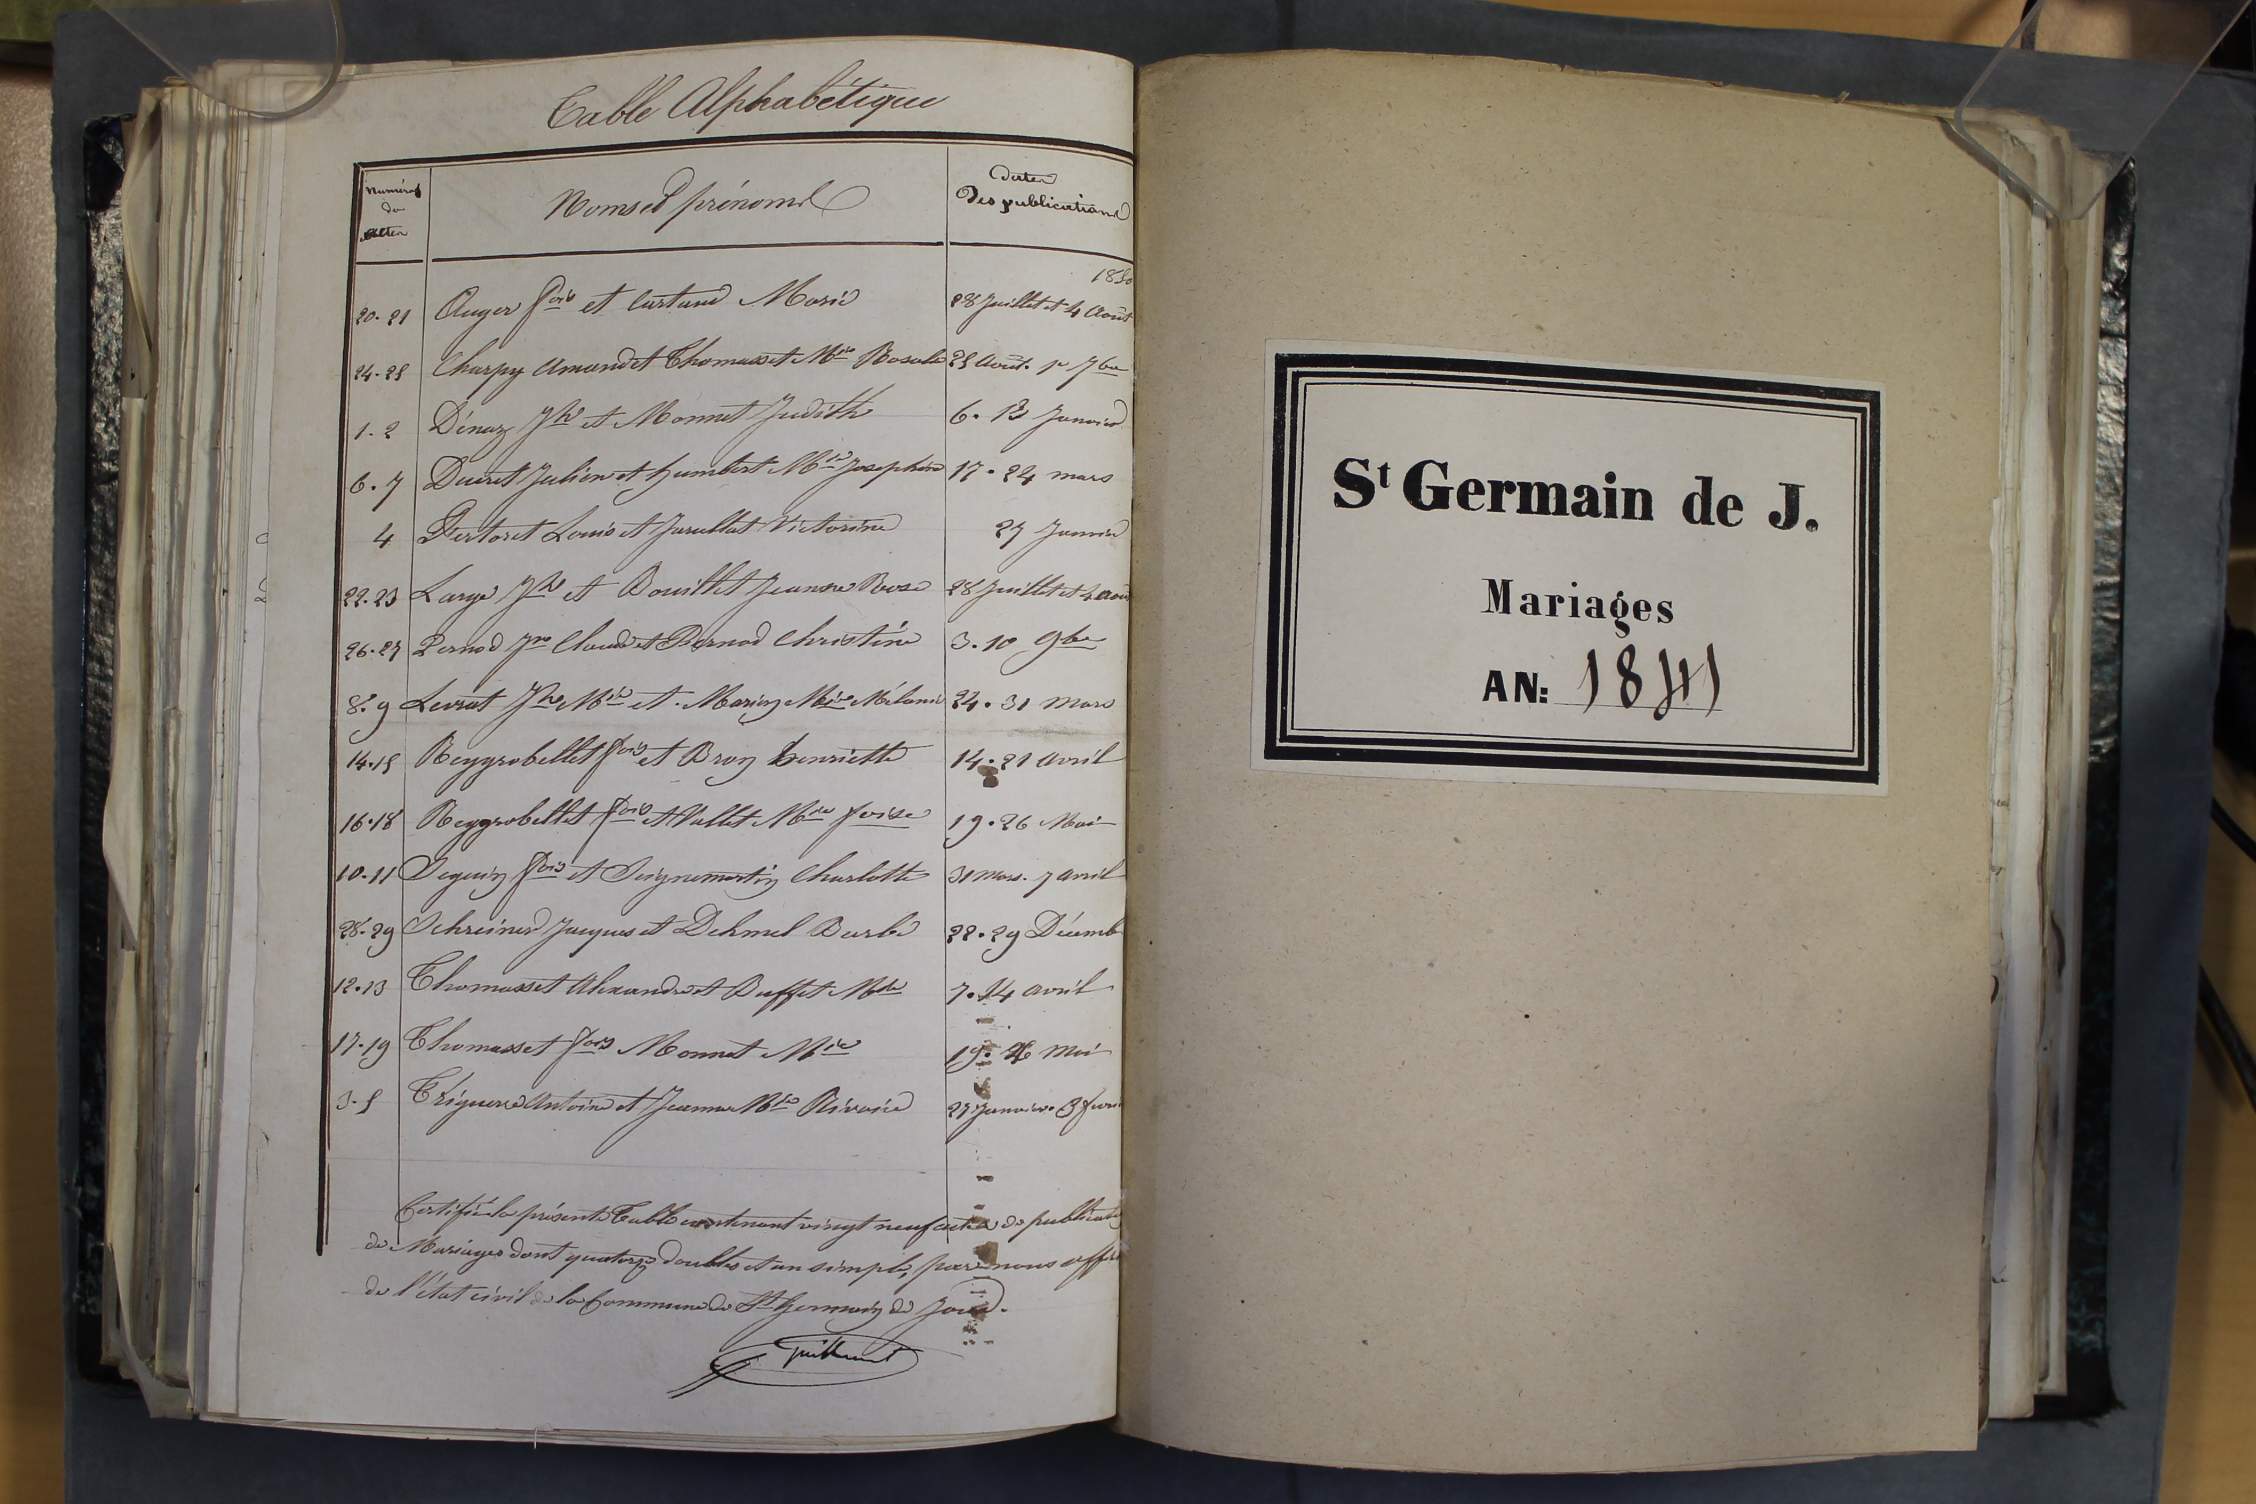 Table Alphabétique
Numéros
de
Actes
Noms et prénoms
Dates
Des publications
1850
20-21 Auger fois et Curtand Marie 28 Juillet et 4 Août
24-25 Charpy Amand et Thomasset Mie Rosalie 25 Août. 1er 7bre
1-2 Dénaz Jh et Monnet Judith 6. 13 Janvier
6-7 Ducret Julien et humbert Mie Josephine 17-24 mars
4 Pertoret Louis et Victorine 27 Janvier
22-23 Large Jh et Bouillet Jeanne Rose 28 Juillet et 4 Août
26-27 Pernod Claude et Pernod Christine 3-10 9bre
8-9 Levrat Jh Mie et Marin Mie Mélanie 24-31 Mars
14-15 Reygrobellet fois et Broy henriette 14-21 avril
16-18 Reygrobellet fois et Vallet foise 19-26 Mai
10-11 Seguin fois et Seignemartin Charlotte 31 Mars. 7 avril
28-29 Schreiner Jacques et Dehmel Barbe 22-29 Décemb
12-13 Thomasset Alexandre et Buffet 7-14 avril
17-19 Thomasset fois Monnet Mie 19. 26 Mai
3-5 Tréguerre Antoine et Jeanne Mie Rivoire 27 Janvier. 3 fevri
Certifié la présente Table contenant vingt neuf actes de publicati
de Mariages dont quatorze doubles et un simple, par nous offi
de l'état civil de la Commune de St Germain de Joux.
St Germain de J.
Mariages
AN: 1841